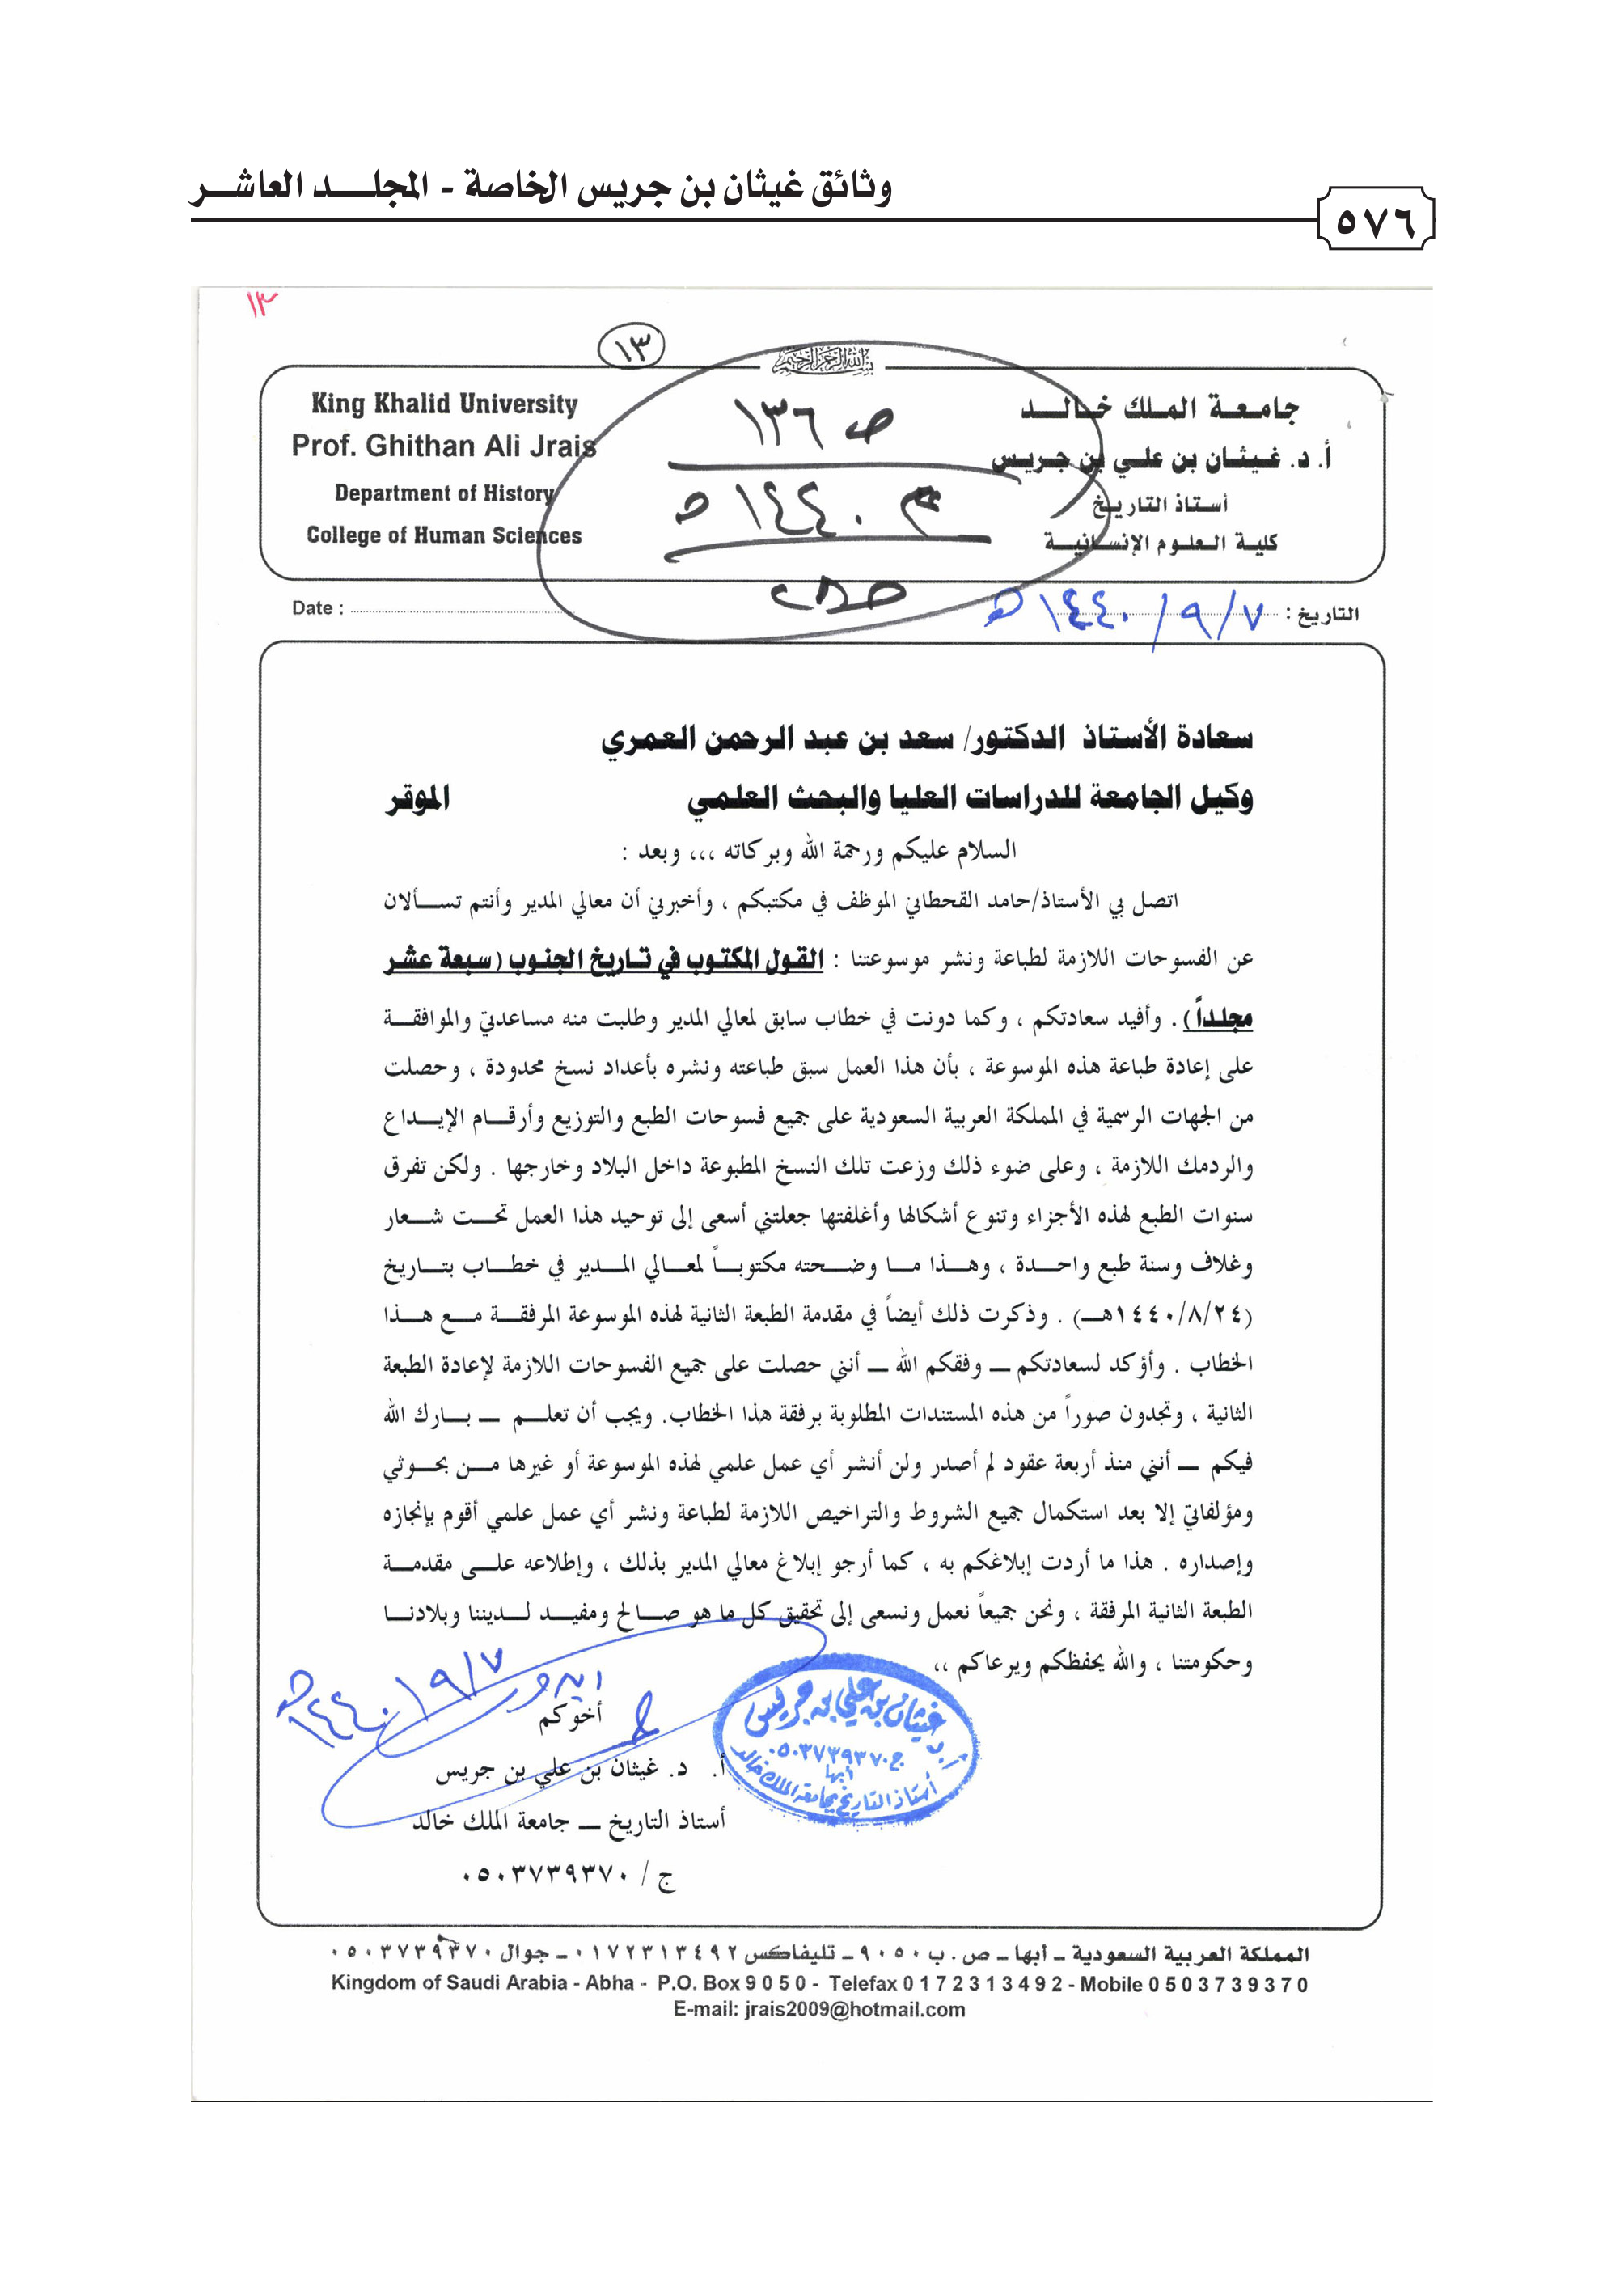 وثائق غيثان بن جريس الخاصة - المجلـــد العاشـــر
٥٧٦
١٣
١٣
بسم الله الرحمن الرحيم
جامعـة الملـك خـالـــد
أ. د. غـيـثـان بن علـي بن جريـس
أستـاذ التاريـخ
كليـة العلـوم الإنسـانيـة
King Khalid University
Prof. Ghithan Ali Jrais
Department of History
College of Human Sciences
ص ١٣٦
١٤٤٠ هـ
التاريخ : ٧/ ٩/ ١٤٤٠ هـ
Date :
سعادة الأستاذ الدكتور/ سعد بن عبد الرحمن العمري
وكيل الجامعة للدراسات العليا والبحث العلمي الموقر
السلام عليكم ورحمة الله وبركاته ،،، وبعد :
اتصل بي الأستاذ/حامد القحطاني الموظف في مكتبكم ، وأخبرني أن معالي المدير وأنتم تســألان
عن الفسوحات اللازمة لطباعة ونشر موسوعتنا : القول المكتوب في تـاريخ الجنوب (سبعة عشر
مجلداً) . وأفيد سعادتكم ، وكما دونت في خطاب سابق لمعالي المدير وطلبت منه مساعدتي والموافقــة
على إعادة طباعة هذه الموسوعة ، بأن هذا العمل سبق طباعته ونشره بأعداد نسخ محدودة ، وحصلت
من الجهات الرسمية في المملكة العربية السعودية على جميع فسوحات الطبع والتوزيع وأرقــام الإيــداع
والردمك اللازمة ، وعلى ضوء ذلك وزعت تلك النسخ المطبوعة داخل البلاد وخارجها . ولكن تفرق
سنوات الطبع لهذه الأجزاء وتنوع أشكالها وأغلفتها جعلتني أسعى إلى توحيد هذا العمل تحــت شــعار
وغلاف وسنة طبع واحــدة ، وهــذا مــا وضــحته مكتوبــاً لمعــالي المــدير في خطــاب بتــاريخ
(١٤٤٠/٨/٢٤هــ) . وذكرت ذلك أيضاً في مقدمة الطبعة الثانية لهذه الموسوعة المرفقــة مــع هــذا
الخطاب . وأؤكد لسعادتكم ــ وفقكم الله ــ أنني حصلت على جميع الفسوحات اللازمة لإعادة الطبعة
الثانية ، وتجدون صوراً من هذه المستندات المطلوبة برفقة هذا الخطاب. ويجب أن تعلــم ــ بــارك الله
فيكم ــ أنني منذ أربعة عقود لم أصدر ولن أنشر أي عمل علمي لهذه الموسوعة أو غيرها مــن بحــوثي
ومؤلفاتي إلا بعد استكمال جميع الشروط والتراخيص اللازمة لطباعة ونشر أي عمل علمي أقوم بإنجازه
وإصداره . هذا ما أردت إبلاغكم به ، كما أرجو إبلاغ معالي المدير بذلك ، وإطلاعه علــى مقدمــة
الطبعة الثانية المرفقة ، ونحن جميعاً نعمل ونسعى إلى تحقيق كل ما هو صــالح ومفيــد لــديننا وبلادنــا
وحكومتنا ، والله يحفظكم ويرعاكم ،،
٧/ ٩/ ١٤٤٠هـ
أخوكم
أ. د. غيثان بن علي بن جريس
أستاذ التاريخ ــ جامعة الملك خالد
ج / ٠٥٠٣٧٣٩٣٧٠
أ.د. غيثان بن علي بن جريس
ج ٠٥٠٣٧٣٩٣٧٠
أبها
أستاذ التاريخ بجامعة الملك خالد
المملكة العربية السعودية - أبها - ص. ب ٩٠٥٠ - تليفاكس ٠١٧٢٣١٣٤٩٢ - جوال ٠٥٠٣٧٣٩٣٧٠
Kingdom of Saudi Arabia - Abha - P.O. Box 9 0 5 0 - Telefax 0 1 7 2 3 1 3 4 9 2 - Mobile 0 5 0 3 7 3 9 3 7 0
E-mail: jrais2009@hotmail.com